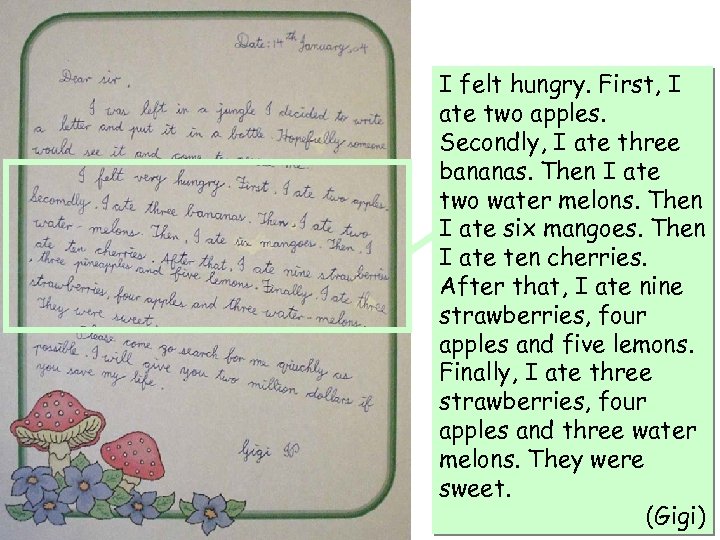 Date: 14th January 04
Dear sir,
I was left in a jungle I decided to write
a letter and put it in a bottle. Hopefully someone
would see it and come to me.
I felt very hungry. First, I ate two apples.
Secondly, I ate three bananas. Then, I ate two
water-melons. Then, I ate six mangoes. Then, I
ate ten cherries. After that, I ate nine strawberries
, three pineapples and five lemons. Finally, I ate three
strawberries, four apples and three water-melons.
They were sweet.
Please come go search for me quickly as
possible. I will give you two million dollars if
you save my life.
Gigi
I felt hungry. First, I
ate two apples.
Secondly, I ate three
bananas. Then I ate
two water melons. Then
I ate six mangoes. Then
I ate ten cherries.
After that, I ate nine
strawberries, four
apples and five lemons.
Finally, I ate three
strawberries, four
apples and three water
melons. They were
sweet.
(Gigi)